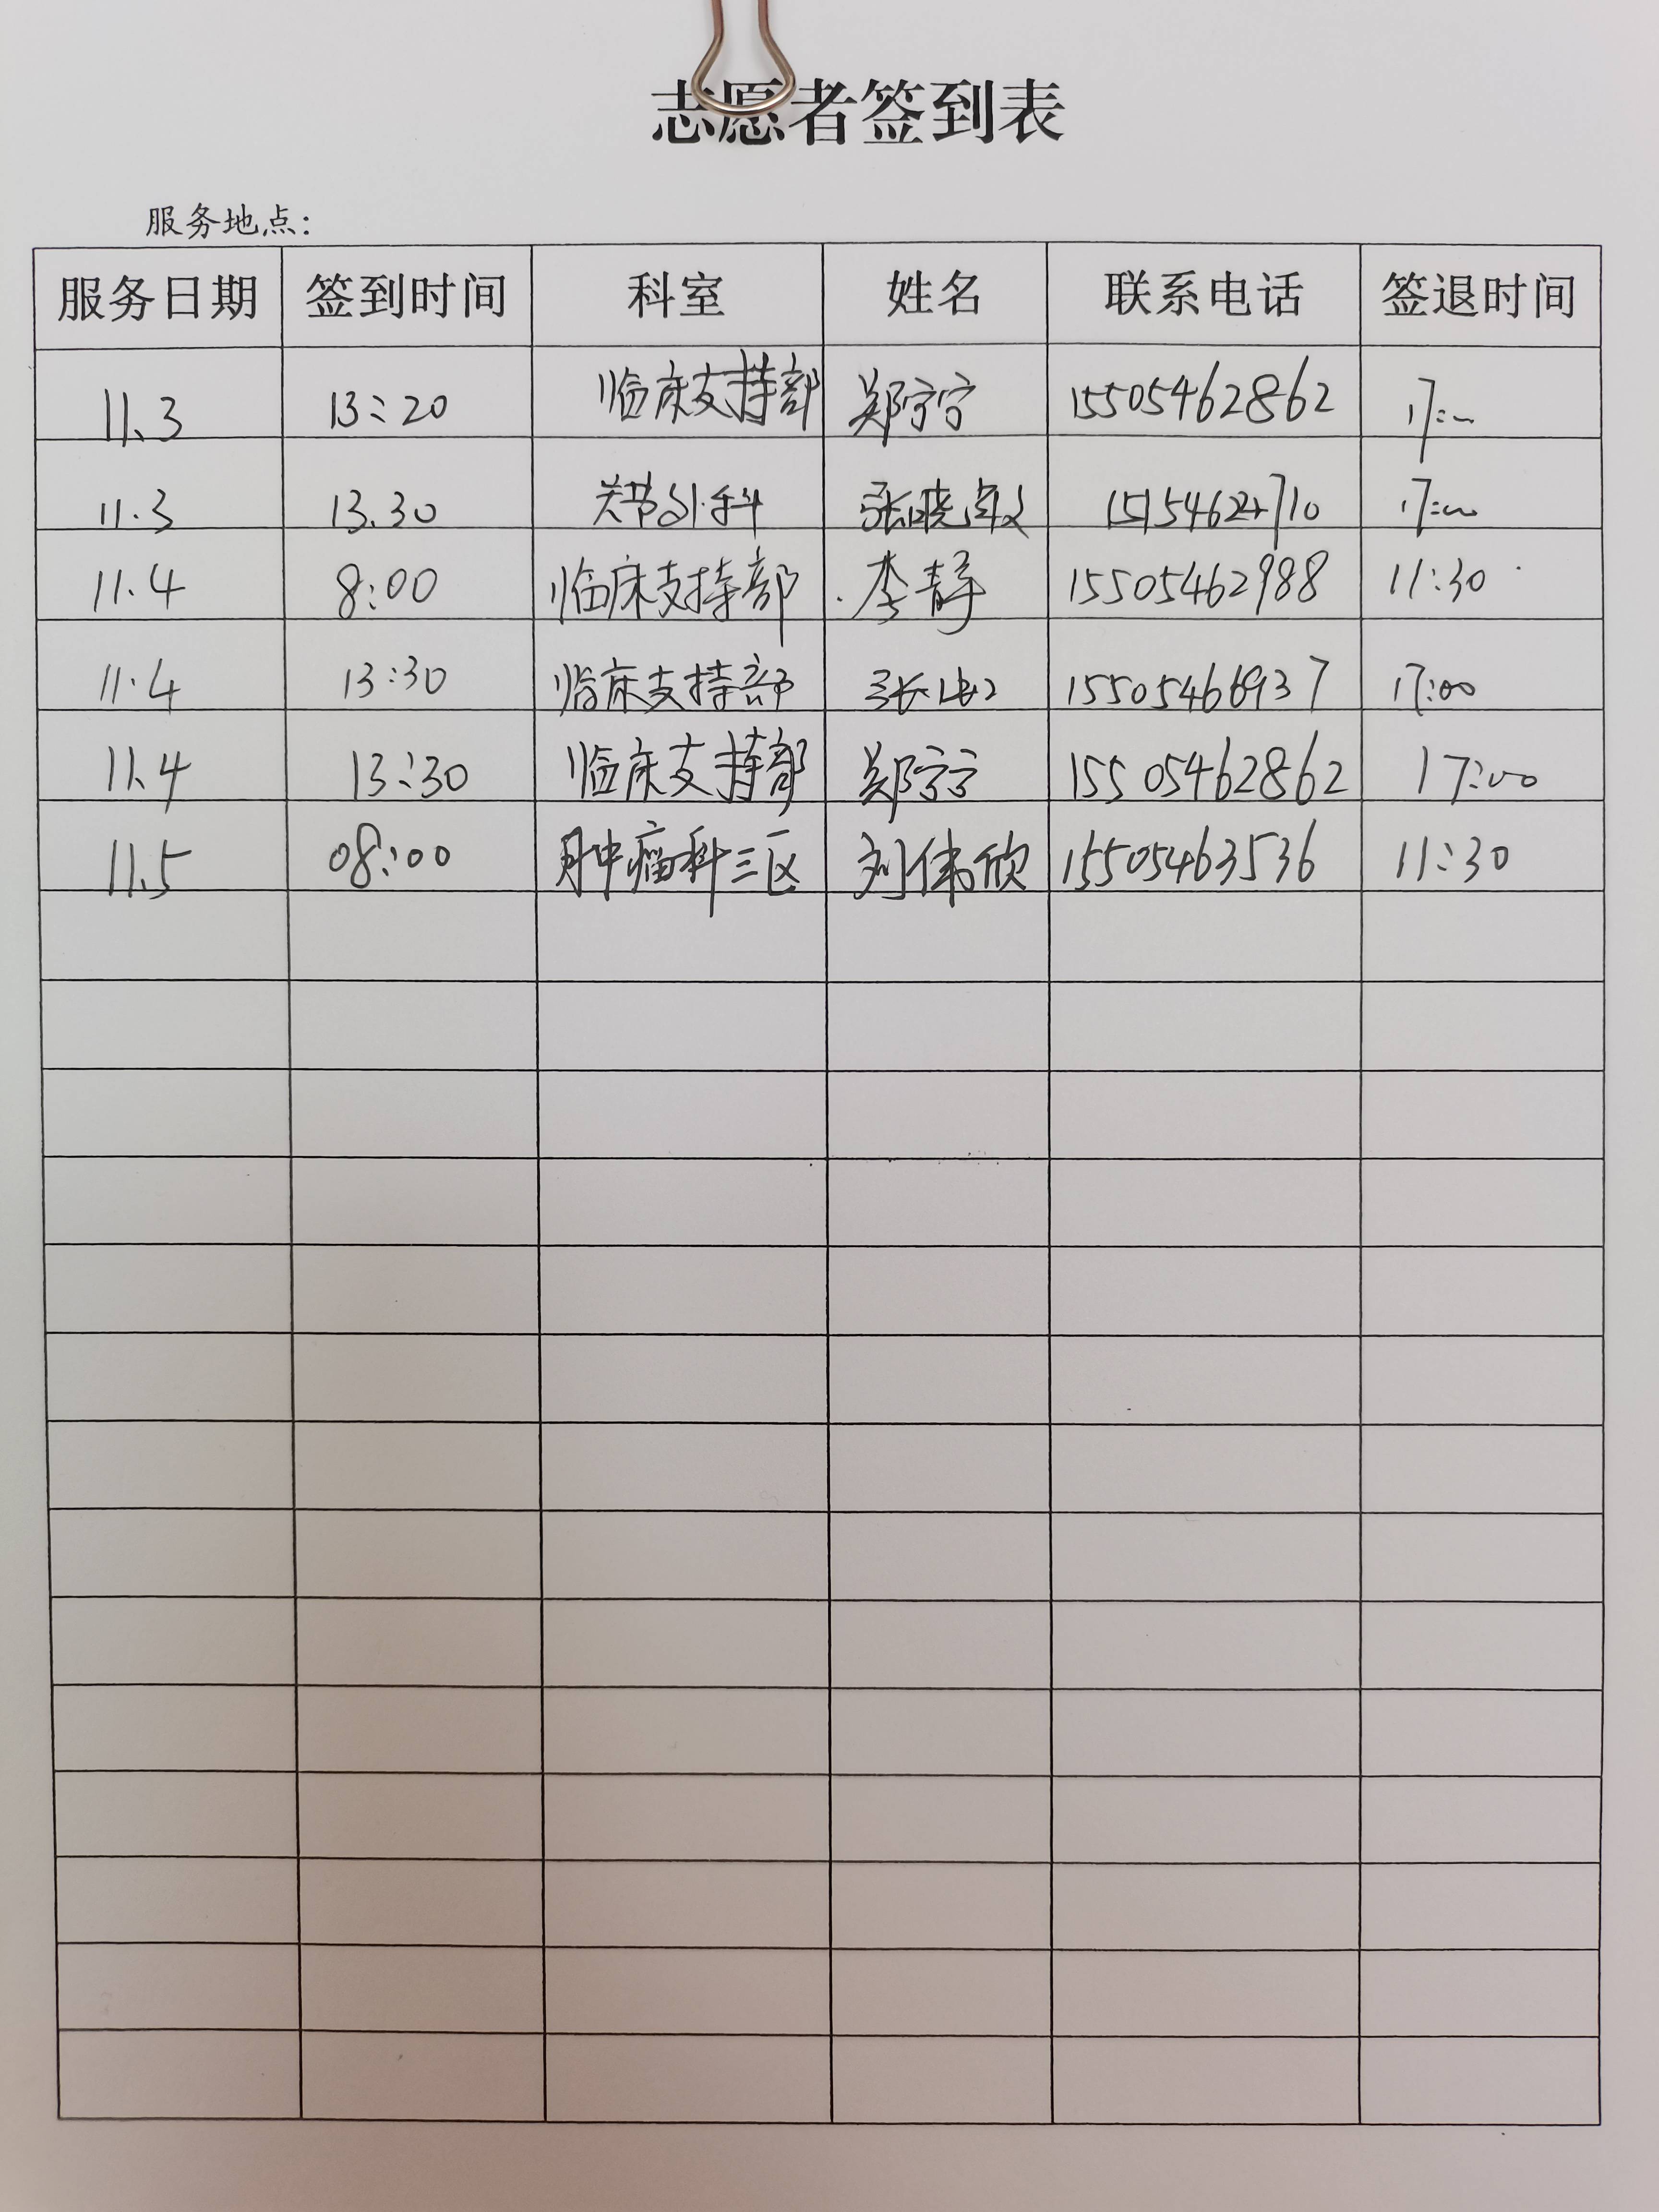 志愿者签到表
服务地点：
服务日期 签到时间 科室 姓名 联系电话 签退时间
11.3 13:20 临床支持部 郑宁宁 15505462862 17:00
11.3 13.30 关节外科 张晓敏 17:00
11.4 8:00 临床支持部 李静 15505462988 11:30
11.4 13:30 临床支持部 15505466937 17:00
11.4 13:30 临床支持部 郑宁宁 15505462862 17:00
11.5 08:00 肿瘤科三区 刘伟欣 15505463536 11:30